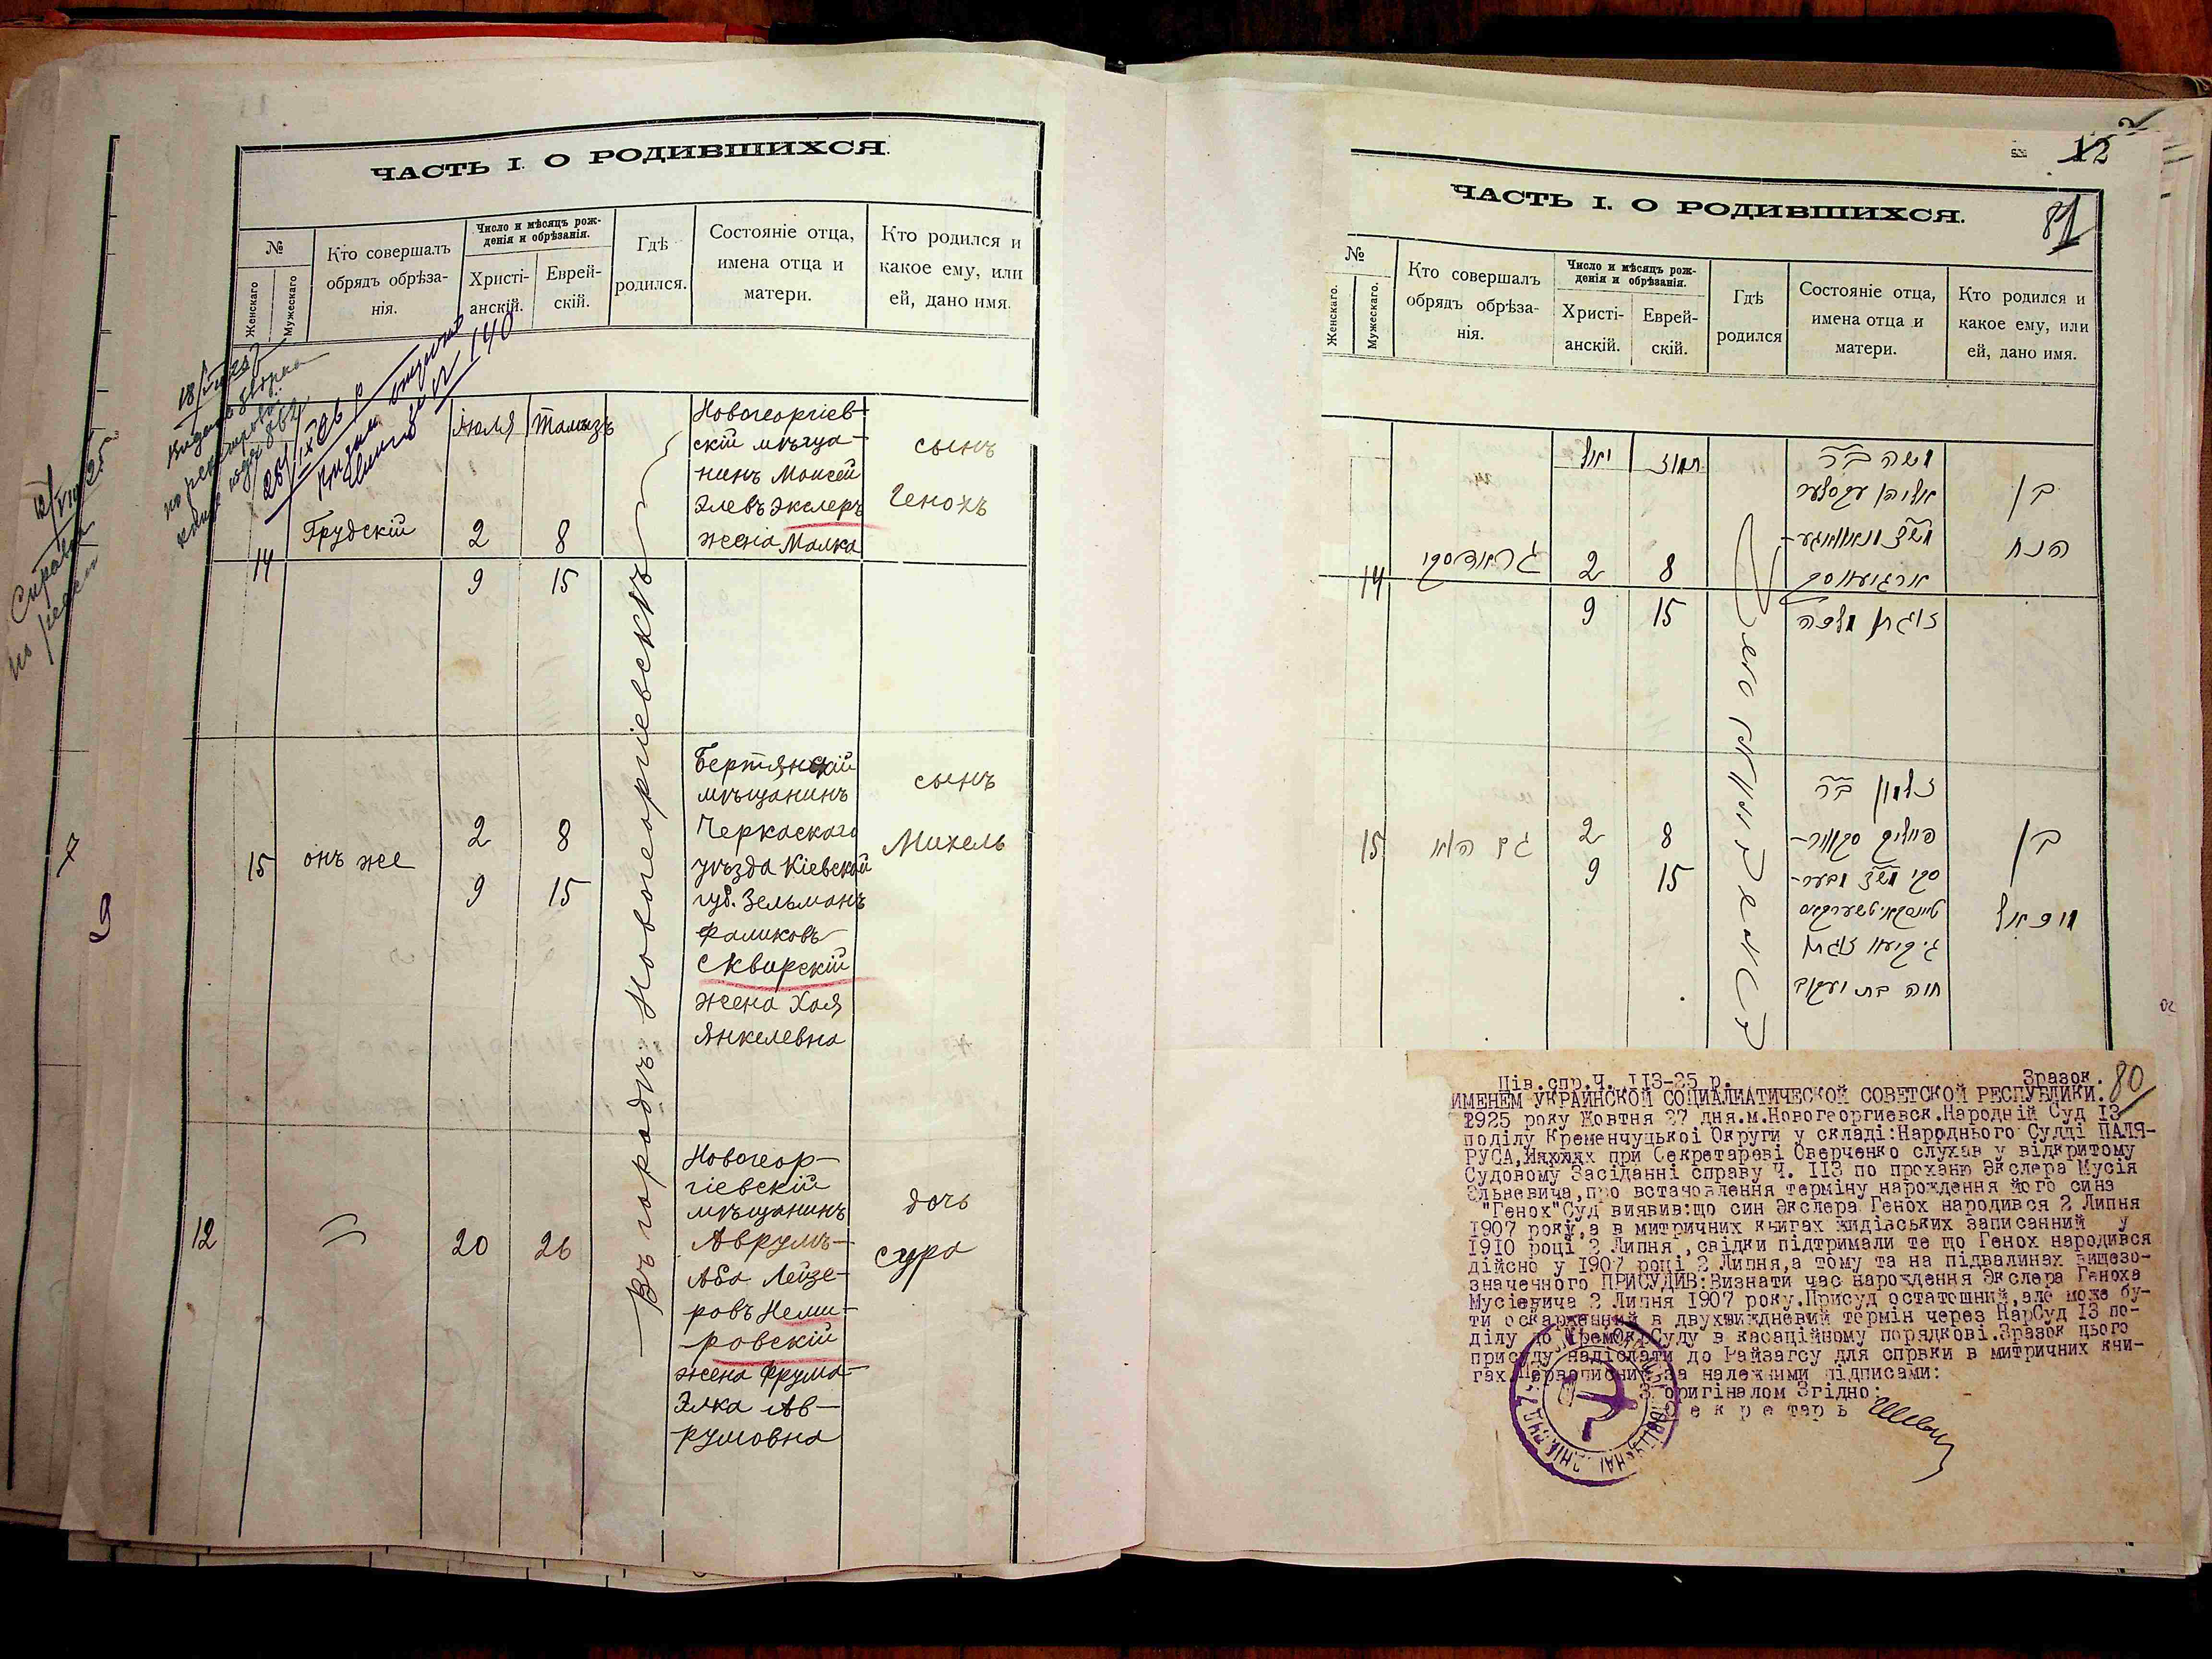 ЧАСТЬ I. О РОДИВШИХСЯ.
№
Женскаго
Мужескаго
Кто совершалъ
обрядъ обрѣза-
нія.
Число и мѣсяцъ рож-
денія и обрѣзанія.
Христі-
анскій.
Еврей-
скій.
Гдѣ
родился.
Состояніе отца,
имена отца и
матери.
Кто родился и
какое ему, или
ей, дано имя.
18
25/IX 26
№ 140
Справка
Июля
Тамызъ
14
Грудскій
2
8
9
15
Новогеоргіев-
скій мѣща-
нинъ Моисей
Элевъ Экслеръ
жена Малка
сынъ
Генохъ
Въ городѣ Новогеоргіевскѣ
7
9
15
онъ же
2
8
9
15
Бертянскій
мѣщанинъ
Черкаскаго
уѣзда Кіевской
губ. Зельманъ
Фаликовъ
Сквирскій
жена Хая
Янкелевна
сынъ
Михель
12
20
26
Новогеор-
гіевскій
мѣщанинъ
Аврумъ-
Аба Лейзе-
ровъ Неми-
ровскій
жена Фрума-
Элка Ав-
румовна
дочь
Сура
12
81
ЧАСТЬ I. О РОДИВШИХСЯ.
№
Женскаго.
Мужескаго.
Кто совершалъ
обрядъ обрѣза-
нія.
Число и мѣсяцъ рож-
денія и обрѣзанія.
Христі-
анскій.
Еврей-
скій.
Гдѣ
родился
Состояніе отца,
имена отца и
матери.
Кто родился и
какое ему, или
ей, дано имя.
יולי
תמוז
14
גראדסקי
2
8
9
15
משה ב״ר
זוגתו מלכה
בן
הנח
15
גם הוא
2
8
9
15
זלמן ב״ר
חוה בת יעקב
בן
מיכאל
Ців.спр.Ч. 113-25 р. Зразок. 80
ИМЕНЕМ УКРАИНСКОЙ СОЦИАЛИАТИЧЕСКОЙ СОВЕТСКОЙ РЕСПУБЛИКИ.
1925 року Жовтня 27 дня.м.Новогеоргиевск.Народній Суд 13
поділу Кременчуцькоі Округи у складі:Народнього Судді ПАЛЯ-
РУСА, при Секретареві Сверченко слухав у відкритому
Судовому Засіданні справу Ч. 113 по проханю Экслера Мусія
Эльвевича,про встановлення терміну нарождення його сина
"Генох"Суд виявив:що син Экслера Генох народився 2 Липня
1907 року,а в митричних книгах жидівських записанний у
1910 році 2 Липня, свідки підтримали те що Генох народився
дійсно у 1907 році 2 Липня,а тому та на підвалинах вищезо-
значенного ПРИСУДИВ:Визнати час народження Экслера Геноха
Мусієвича 2 Липня 1907 року.Присуд остатошний,але може бу-
ти оскарженний в двухтиждневий термін через НарСуд 13 по-
ділу до Кремокр.Суду в касаційному порядкові.Зразок цього
присуду надіслати до Райзагсу для спрвки в митричних кни-
гах.Первописний за належними підписами:
З оригіналом Згідно:
Секретарь